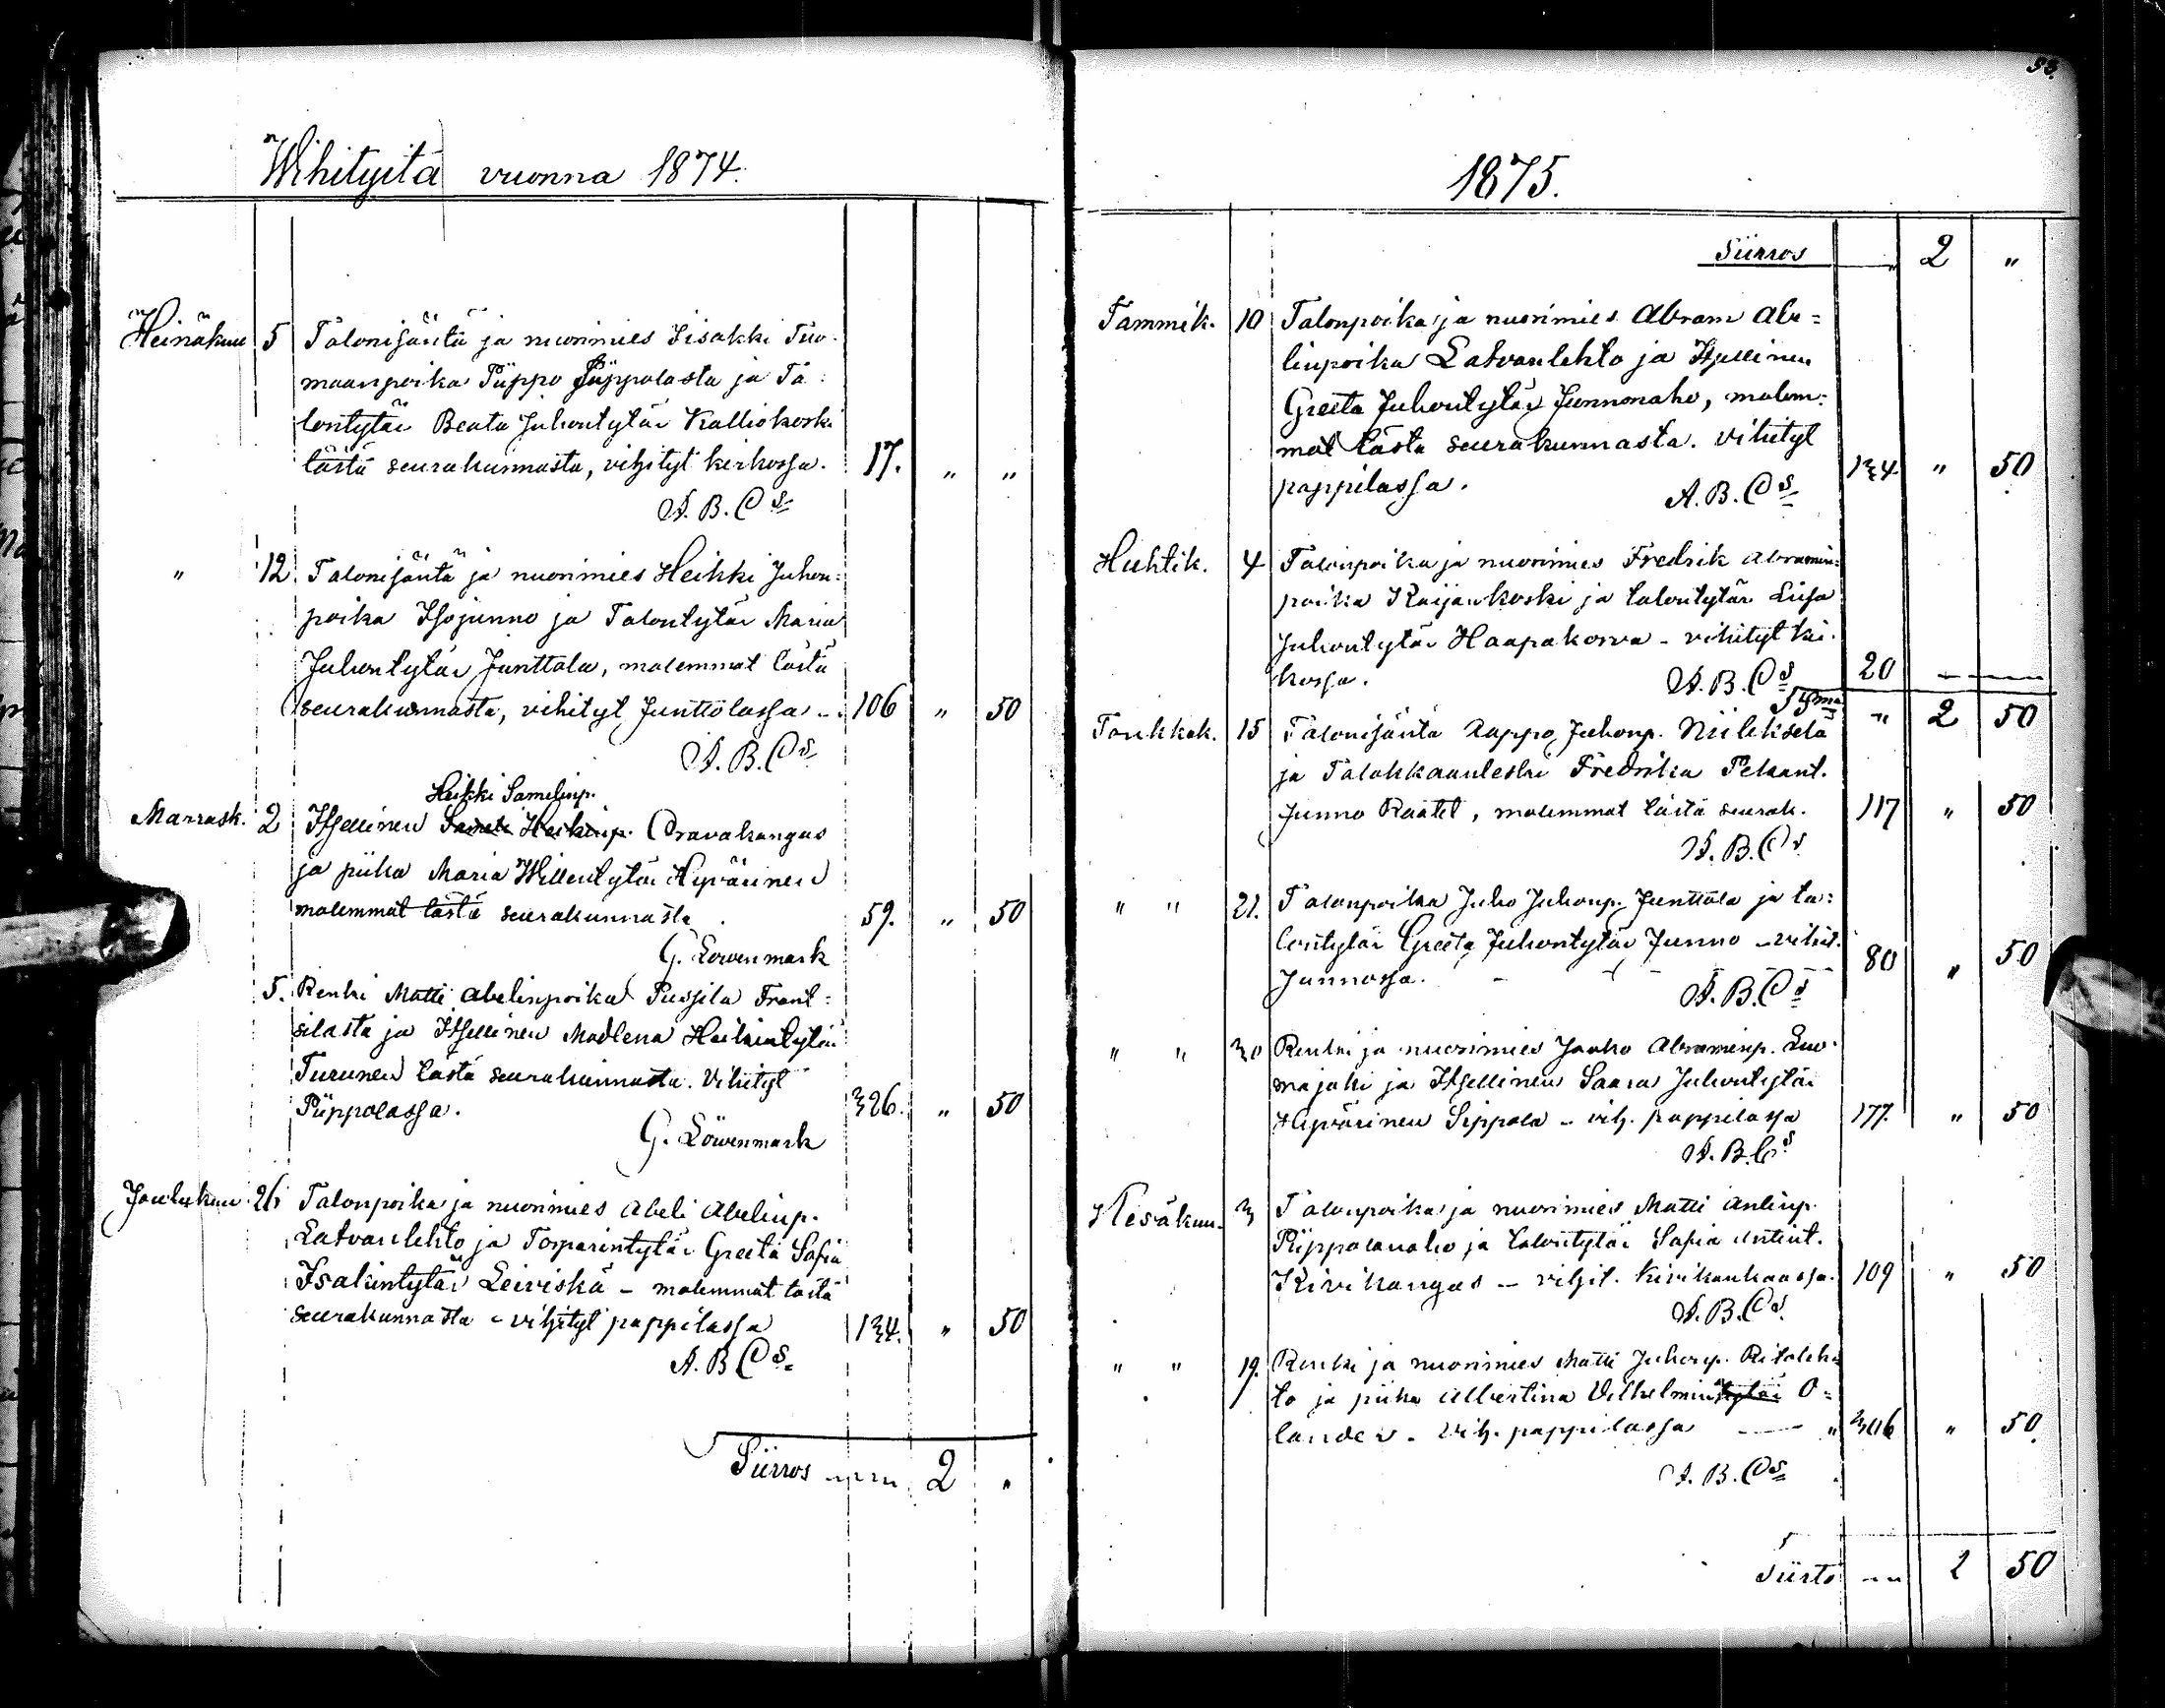 Wihityitä vuonna 1874.
Heinäkuu 5 Talonisäntä ja nuorimies Iisakki Tuo-
maanpoika Piippo Piippolasta ja Ta=
lontytär Beata Juhontytär Kalliokoski
tästä seurakunnasta, vihityt kirkossa. 17. " "
A. B. Cs
" 12. Talonisäntä ja nuorimies Heikki Juhon=
poika Isojunno ja Talontytär Maria
Juhontytär Junttola, molemmat tästä
seurakunnasta, vihityt Junttolassa - 106 " 50
A. B. Cs
Heikki Samelinp.
Marrask. 2 Itsellinen Sameli Heikinp. Oravakangas
ja piika Maria Willentytär Hyvärinen
molemmat tästä seurakunnasta. 59. " 50
G. Löwenmark
5. Renki Matti Abelinpoika Pussila Frant=
silasta ja Itsellinen Madlena Heikintytär
Turunen tästä seurakunnasta. Vihityt
Piippolassa. 326. " 50
G. Löwenmark
Joulukuu 26 Talonpoika ja nuorimies Abeli Abelinp.
Latvanlehto ja Torparintytär Greeta Sofia
Isakintytär Leiviskä - molemmat tästä
seurakunnasta - vihityt pappilassa 134. " 50
A. B. Cs
Siirros 2 "
53.
1875.
Siirros 2 "
Tammik. 10 Talonpoika ja nuorimies Abram Abe=
linpoika Latvanlehto ja Itsellinen
Greeta Juhontytär Junnonaho, molem=
mat tästä seurakunnasta. vihityt
pappilassa. 134. " 50
A. B. Cs
Huhtik. 4 Talonpoika ja nuorimies Fredrik Abramin=
poika Raijankoski ja talontytär Liisa
Juhontytär Haapakorva - vihityt kir-
kossa. 20
A. B. Cs
Sma " 2 50
Toukkok. 15 Talonisäntä Aappo Juhonp. Niileksela
ja Talokkaanleski Fredrika Pekant.
Junno Raatet, molemmat tästä seurak. 117 " 50
A. B. Cs
" " 21. Talonpoika Juho Juhonp. Junttola ja ta=
lontytär Greeta Juhontytär Junno - vihit.
Junnossa. 80 " 50
A. B. Cs
" " 30 Renki ja nuorimies Jaako Abraminp. Luo-
majoki ja Itsellinen Saara Juhontytär
Hyvärinen Sippola - vih. pappilassa 177. " 50
A. B. Cs
Kesäkuu. 3 Talonpoika ja nuorimies Matti Antinp.
Piippolanaho ja talontytär Sofia Antint.
Kivikangas - vihit. Kivikankaassa. 109 " 50
A. B. Cs.
" " 19. Renki ja nuorimies Matti Juhonp. Ritoleh=
to ja piika Albertina Vilhelmiintytär O=
lander. vih. pappilassa " 306 " 50
A. B. Cs
Siirto 2 50